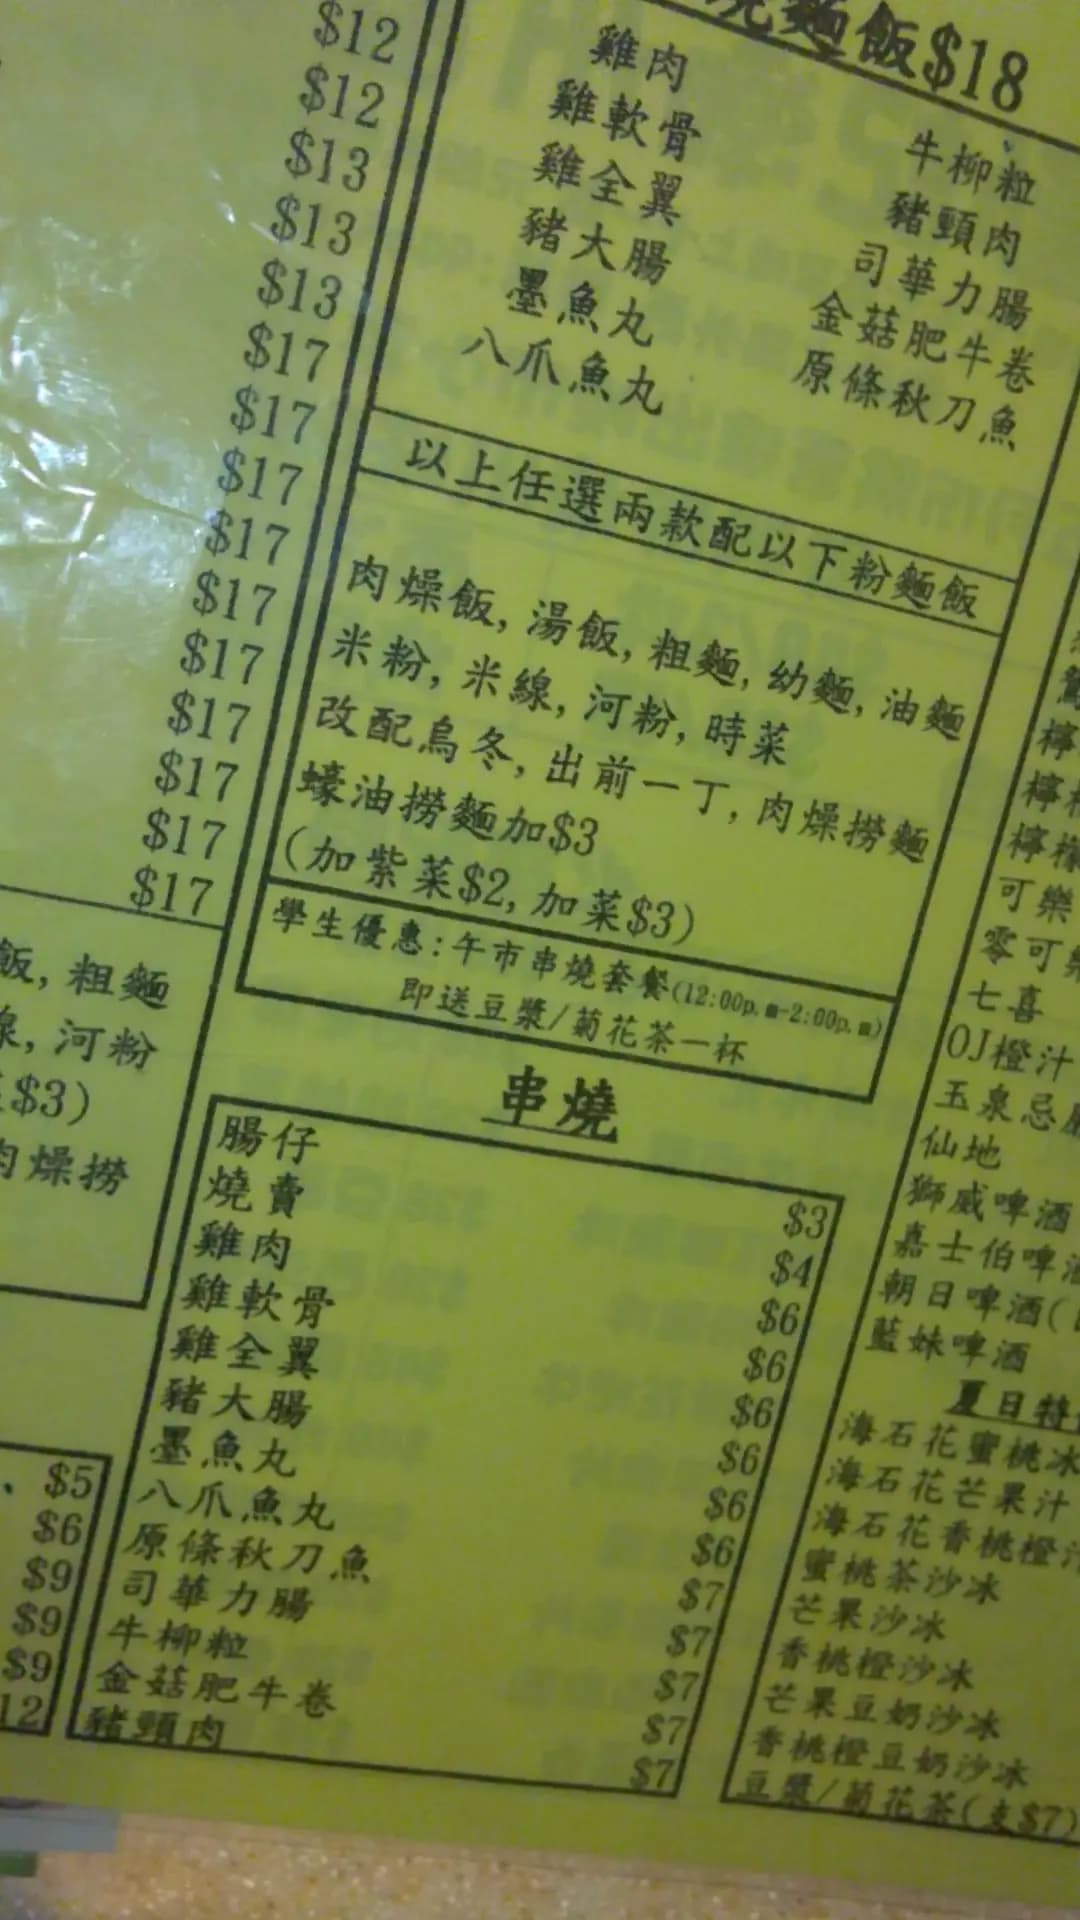 $12
$12
$13
$13
$13
$17
$17
$17
$17
$17
$17
$17
$17
$17
$17
飯, 粗麵
線, 河粉
$3)
肉燥撈
$5
$6
$9
$9
$9
12
燒麵飯$18
雞肉
雞軟骨
雞全翼
豬大腸
墨魚丸
八爪魚丸
牛柳粒
豬頸肉
司華力腸
金菇肥牛卷
原條秋刀魚
以上任選兩款配以下粉麵飯
肉燥飯, 湯飯, 粗麵, 幼麵, 油麵
米粉, 米線, 河粉, 時菜
改配烏冬, 出前一丁, 肉燥撈麵
蠔油撈麵加$3
(加紫菜$2, 加菜$3)
學生優惠:午市串燒套餐(12:00p.m-2:00p.m)
即送豆漿/菊花茶一杯
串燒
腸仔 $3
燒賣 $4
雞肉 $6
雞軟骨 $6
雞全翼 $6
豬大腸 $6
墨魚丸 $6
八爪魚丸 $6
原條秋刀魚 $7
司華力腸 $7
牛柳粒 $7
金菇肥牛卷 $7
豬頸肉 $7
檸
檸
檸檬
可樂
零可樂
七喜
OJ橙汁
玉泉忌
仙地
獅威啤酒
嘉士伯啤酒
朝日啤酒(
藍妹啤酒
夏日特
海石花蜜桃冰
海石花芒果汁
海石花香桃橙汁
蜜桃茶沙冰
芒果沙冰
香桃橙沙冰
芒果豆奶沙冰
香桃橙豆奶沙冰
豆漿/菊花茶(支$7)